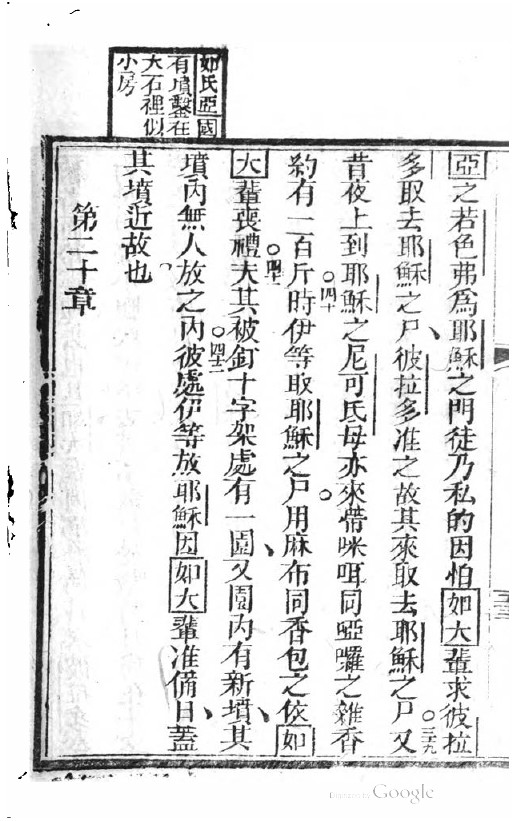 如氏亞國
有墳鑿在
大石裡似
小房
亞之若色弗爲耶穌之門徒乃私的因怕如大輩求彼拉
多取去耶穌之尸、彼拉多准之故其來取去耶穌之尸○三九又
昔夜上到耶穌之尼可氏母亦來帶咪咡同啞囉之雜香
約有一百斤○四十時伊等取耶穌之尸用麻布同香包之○依如
大輩喪禮○四一夫其被釘十字架處有一園、又園內有新墳、其
墳內無人放之內○四二彼處伊等放耶穌因如大輩准備日、蓋
其墳近故也
第二十章
Digitized by Google